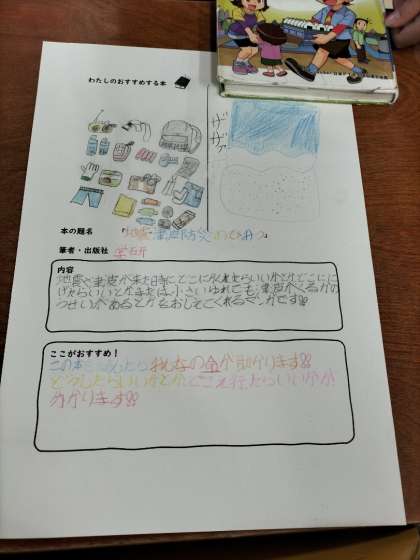 わたしのおすすめする本
ザ
ザ
ザァ
本の題名 「地震・津波防災のひみつ」
筆者・出版社 学研
内容
地震や津波が来た時にどこにかくれたらいいかとかどこに
げたらいいとか
小さいゆれでも津波がくるか
つせいがあるとかをおしえてくれる
です
ここがおすすめ!
この本を読んだら
の命が助かります
どうしたらいいかとかどこへ行ったらいいかが
分かります